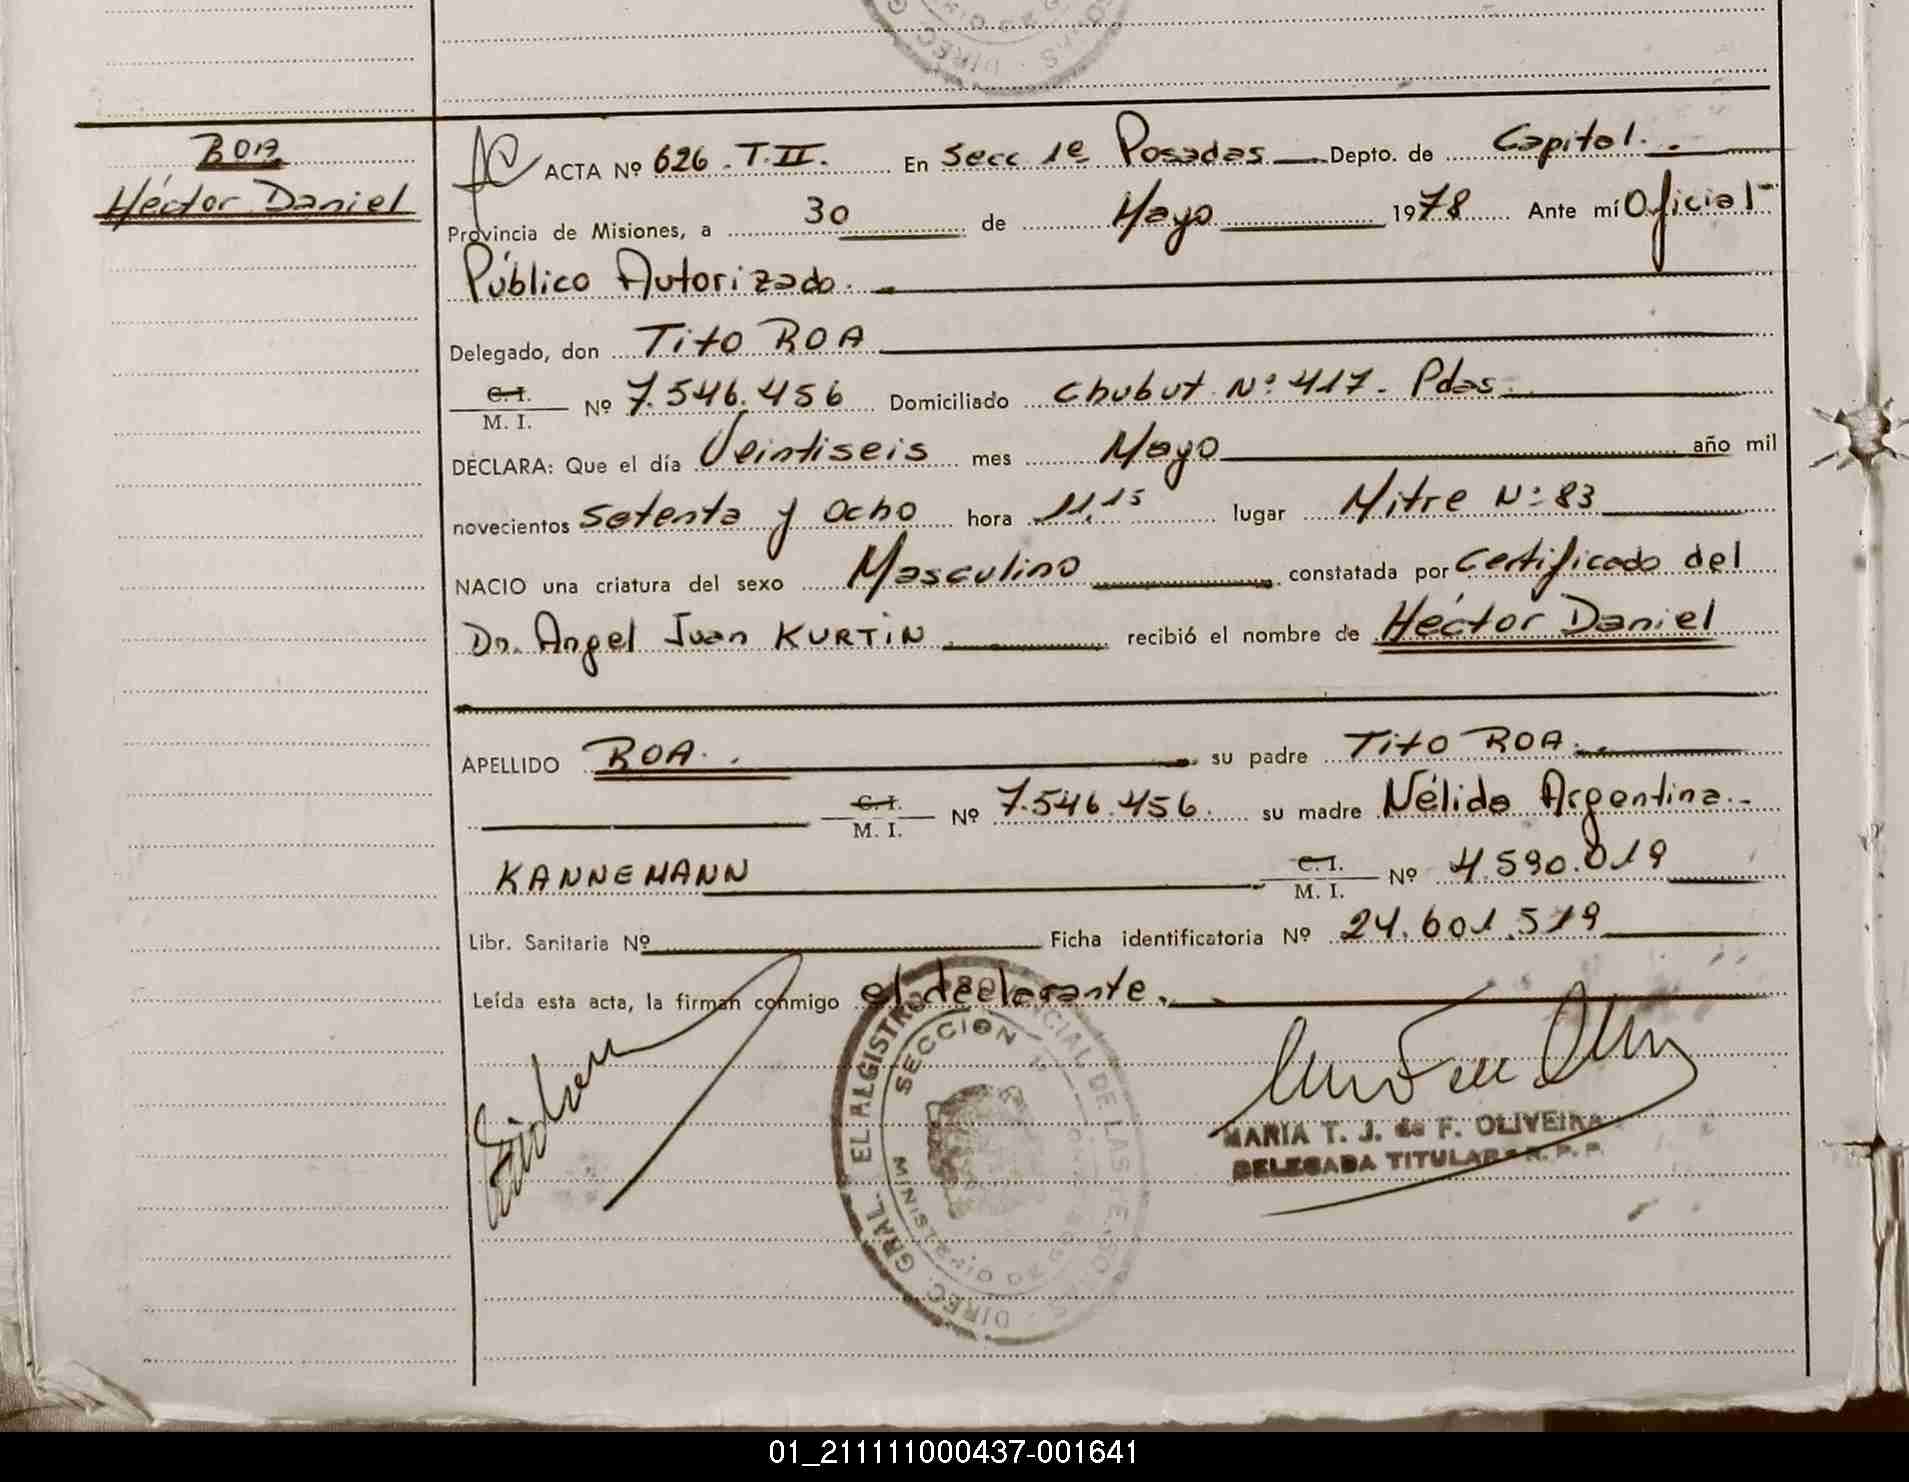 ROA
Héctor Daniel
ACTA Nº 626. T.II. En Secc 1ª Posadas Depto. de Capital.
Provincia de Misiones, a 30 de Mayo 1978 Ante mí Oficial
Público Autorizado.
Delegado, don Tito ROA
C.I.
M. I. Nº 7.546.456 Domiciliado Chubut Nº 417. Pdas.
DECLARA: Que el día Veintiseis mes Mayo año mil
novecientos Setenta y Ocho hora 11,15 lugar Mitre Nº 83
NACIO una criatura del sexo Masculino constatada por Certificado del
Dr. Angel Juan KURTIN recibió el nombre de Héctor Daniel
APELLIDO ROA. su padre Tito ROA.
C.I.
M. I. Nº 7.546.456. su madre Nélida Argentina
KANNEMANN C.I.
M. I. Nº 4.590.019
Libr. Sanitaria Nº Ficha identificatoria Nº 24.601.519
Leída esta acta, la firman conmigo el declarante.
SECCION
MARIA T. J. de F. OLIVEIRA
DELEGADA TITULAR R. P. P.
01_211111000437-001641